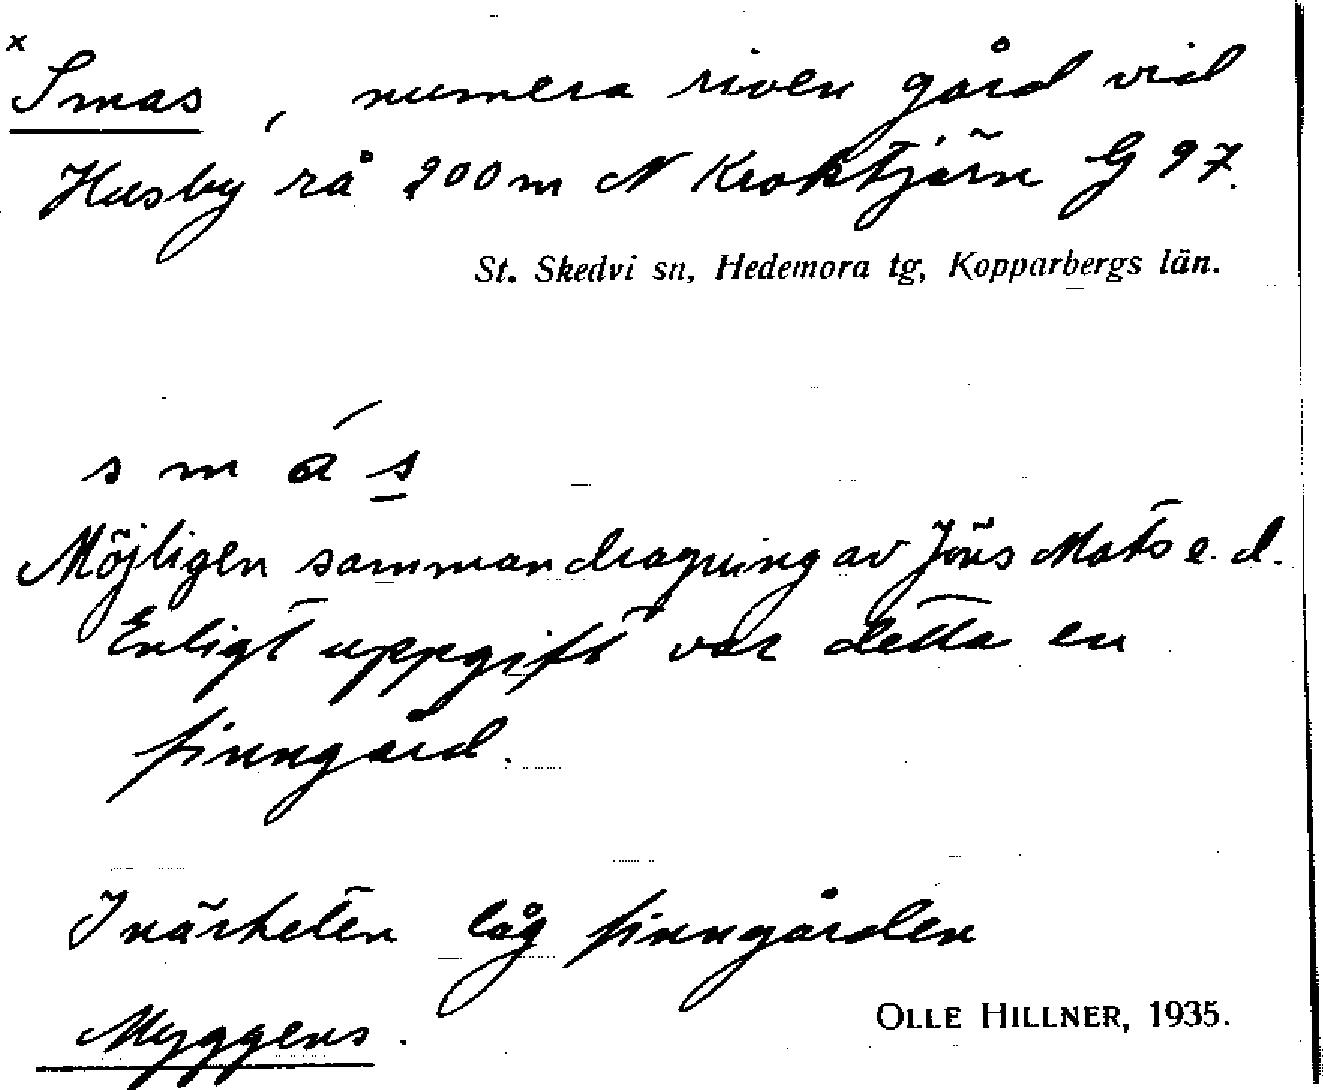 x
Smas, numera riven gård vid
Husby rå 200 m N Kroktjärn G 97.
St. Skedvi sn, Hedemora tg, Kopparbergs län.
s m á s
Möjligen sammandragning av Jöns Mats e. d.
Enligt uppgift var detta en
finngård.
I närheten låg finngården
Myggens.
OLLE HILLNER, 1935.